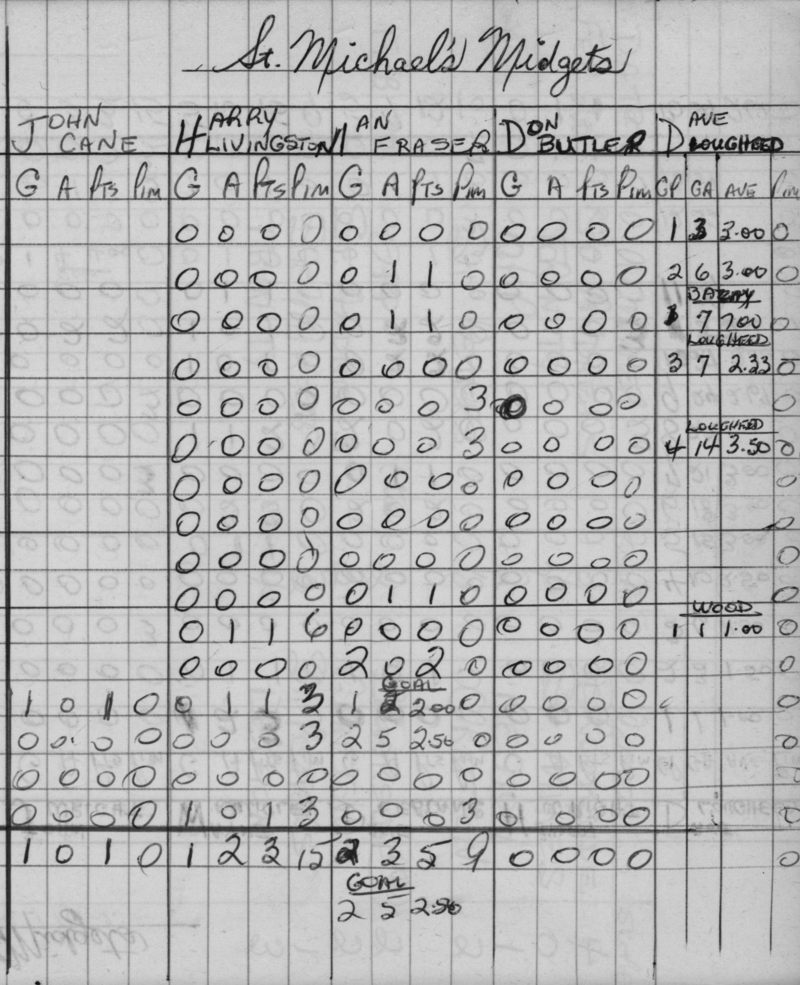 St. Michael's Midgets
JOHN CANE HARRY LIVINGSTON IAN FRASER DON BUTLER DAVE LOUGHEED
G A Pts Pim G A Pts Pim G A Pts Pim G A Pts Pim GP GA AVE Pim
0 0 0 0 0 0 0 0 0 0 0 0 1 3 3.00 0
0 0 0 0 0 1 1 0 0 0 0 0 2 6 3.00 0
BATTY
0 0 0 0 0 1 1 0 0 0 0 0 1 7 7.00 0
LOUGHEED
0 0 0 0 0 0 0 0 0 0 0 0 3 7 2.33 0
0 0 0 0 0 0 0 3 0 0 0 0 0
LOUGHEED
0 0 0 0 0 0 0 3 0 0 0 0 4 14 3.50 0
0 0 0 0 0 0 0 0 0 0 0 0 0
0 0 0 0 0 0 0 0 0 0 0 0 0
0 0 0 0 0 0 0 0 0 0 0 0 0
0 0 0 0 0 1 1 0 0 0 0 0 0
WOOD
0 1 1 6 0 0 0 0 0 0 0 0 1 1 1.00 0
0 0 0 0 2 0 2 0 0 0 0 0 0
GOAL
1 0 1 0 0 1 1 3 1 2 2.00 0 0 0 0 0 0
0 0 0 0 0 0 0 3 2 5 2.50 0 0 0 0 0 0
0 0 0 0 0 0 0 0 0 0 0 0 0 0 0 0 0
0 0 0 0 1 0 1 3 0 0 0 3 0 0 0 0 0
1 0 1 0 1 2 3 15 2 3 5 9 0 0 0 0 0
GOAL
2 5 2.50